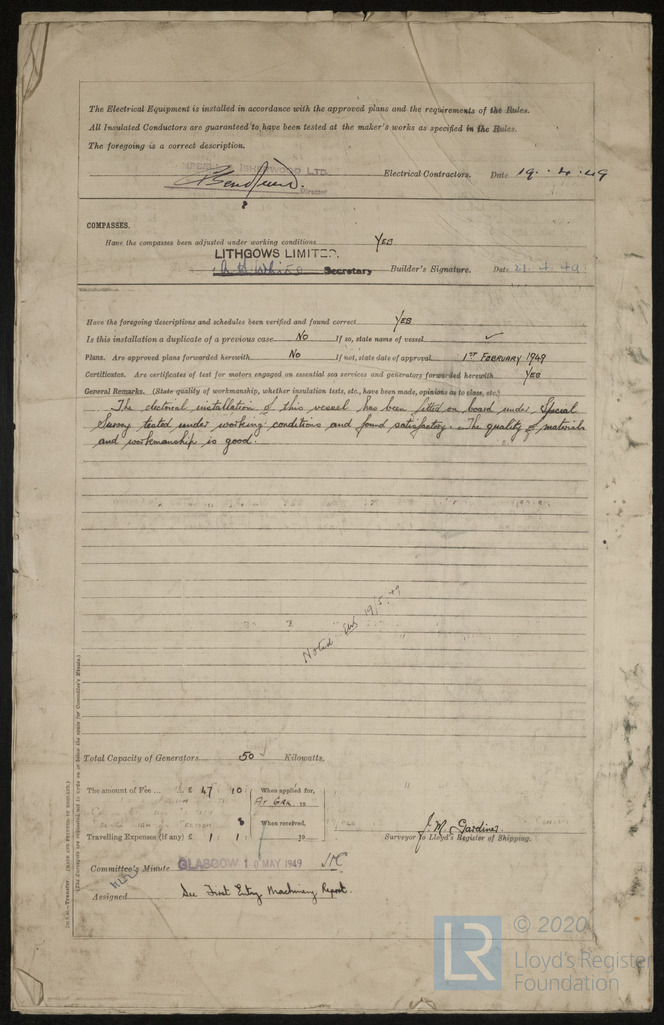 The Electrical Equipment is installed in accordance with the approved plans and the requirements of the Rules.
All Insulated Conductors are guaranteed to have been tested at the maker's works as specified in the Rules.
The foregoing is a correct description.
LTD.
Director
Electrical Contractors. Date 19. 4. 49
COMPASSES.
Have the compasses been adjusted under working conditions YES
LITHGOWS LIMITED.
Secretary Builder's Signature. Date 21. 4. 49
Have the foregoing descriptions and schedules been verified and found correct YES
Is this installation a duplicate of a previous case No If so, state name of vessel ✓
Plans. Are approved plans forwarded herewith No If not, state date of approval 1ST FEBRUARY 1949
Certificates. Are certificates of test for motors engaged on essential sea services and generators forwarded herewith YES
General Remarks. (State quality of workmanship, whether insulation tests, etc., have been made, opinions as to class, etc.)
The electrical installation of this vessel has been fitted on board under Special
Survey tested under working conditions and found satisfactory. The quality of materials
and workmanship is good.
Noted 19/5/49
Total Capacity of Generators 50 ✓ Kilowatts.
The amount of Fee ... £ 47 : 10 : When applied for,
19
When received,
Travelling Expenses (if any) £ 1 : 1 : 19
J. M. Gardiner.
Surveyor to Lloyd's Register of Shipping.
Committee's Minute GLASGOW 18 MAY 1949
Assigned See First Entry Machinery Report.
© 2020
LR
Lloyd's Register
Foundation